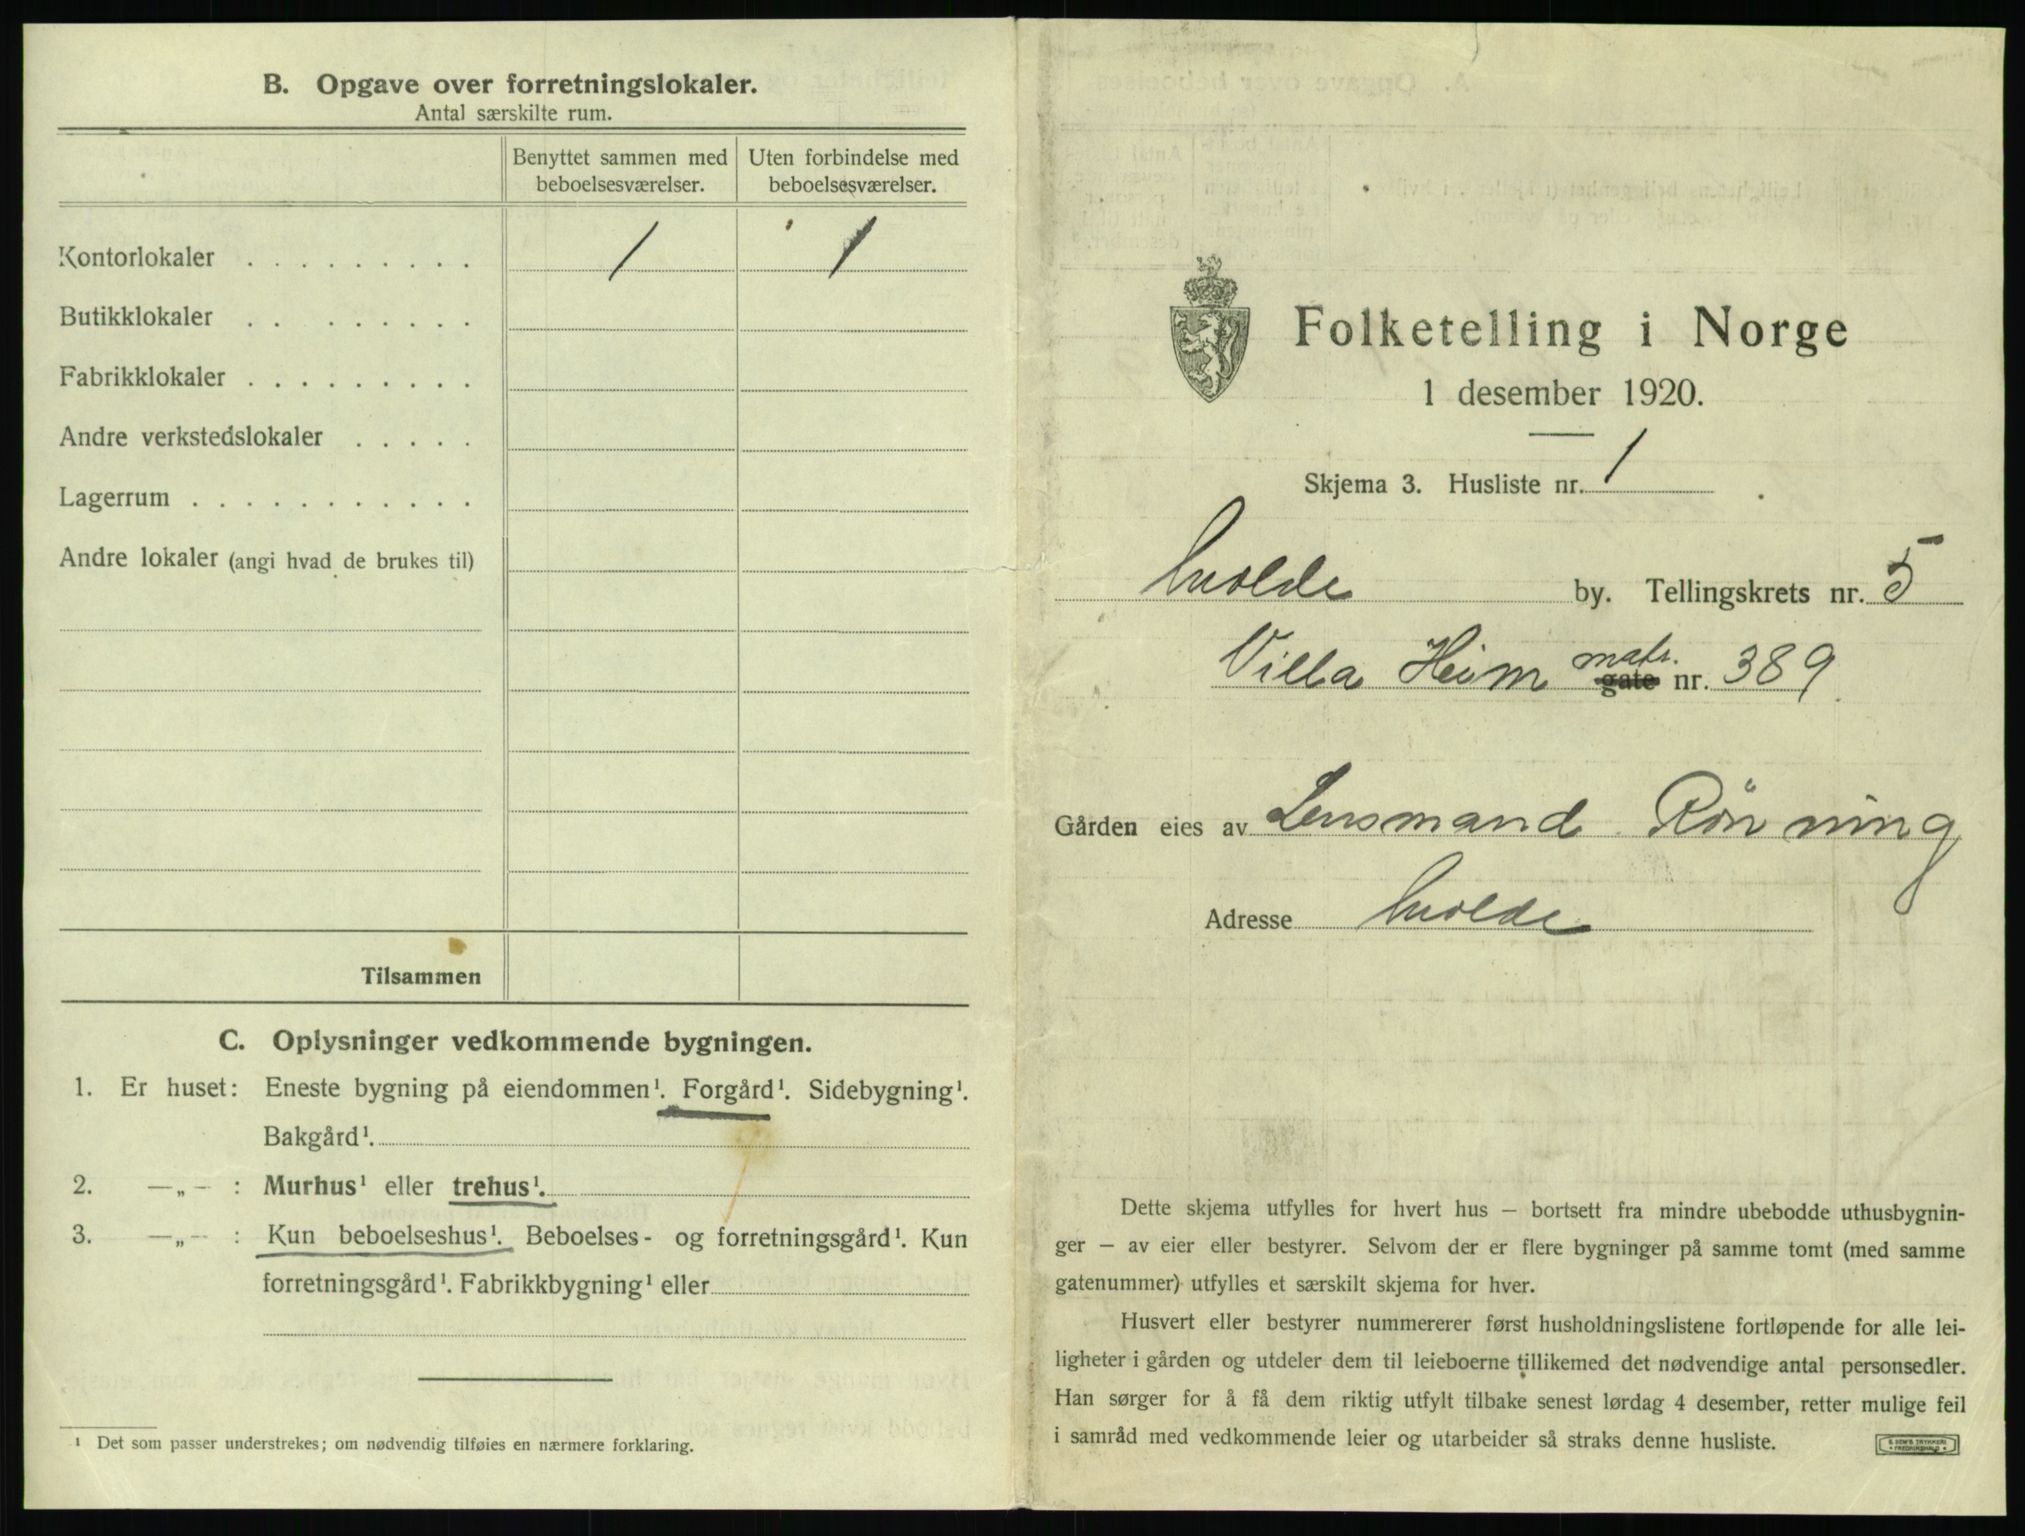 B. Opgave over forretningslokaler.
Antal særskilte rum.
Benyttet sammen med beboelsesværelser.
Uten forbindelse med beboelsesværelser.
Kontorlokaler . . . . . . . . . 1 1
Butikklokaler . . . . . . . .
Fabrikklokaler . . . . . . . . .
Andre verkstedslokaler . . . . .
Lagerrum . . . . . . . . . . .
Andre lokaler (angi hvad de brukes til)
Tilsammen
C. Oplysninger vedkommende bygningen.
1. Er huset: Eneste bygning på eiendommen¹. Forgård¹. Sidebygning¹.
Bakgård¹.
2. —„— : Murhus¹ eller trehus¹.
3. —„— : Kun beboelseshus¹. Beboelses- og forretningsgård¹. Kun
forretningsgård¹. Fabrikkbygning¹ eller
¹ Det som passer understrekes; om nødvendig tilføies en nærmere forklaring.
Folketelling i Norge
1 desember 1920.
Skjema 3. Husliste nr. 1
Molde by. Tellingskrets nr. 5
Villa Heim matr. gate nr. 389
Gården eies av Lensmand Rönning
Adresse Molde
Dette skjema utfylles for hvert hus — bortsett fra mindre ubebodde uthusbygnin-
ger — av eier eller bestyrer. Selvom der er flere bygninger på samme tomt (med samme
gatenummer) utfylles et særskilt skjema for hver.
Husvert eller bestyrer nummererer først husholdningslistene fortløpende for alle lei-
ligheter i gården og utdeler dem til leieboerne tillikemed det nødvendige antal personsedler.
Han sørger for å få dem riktig utfylt tilbake senest lørdag 4 desember, retter mulige feil
i samråd med vedkommende leier og utarbeider så straks denne husliste.